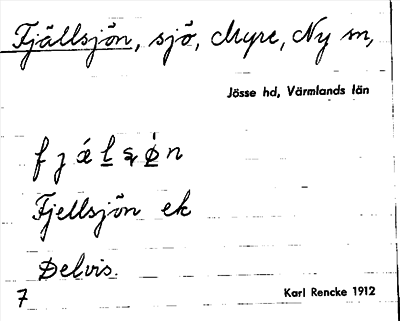 Fjällsjön, sjö, Myre, Ny sn,
Jösse hd, Värmlands län
Fjellsjön ek
Delvis.
7 Karl Rencke 1912